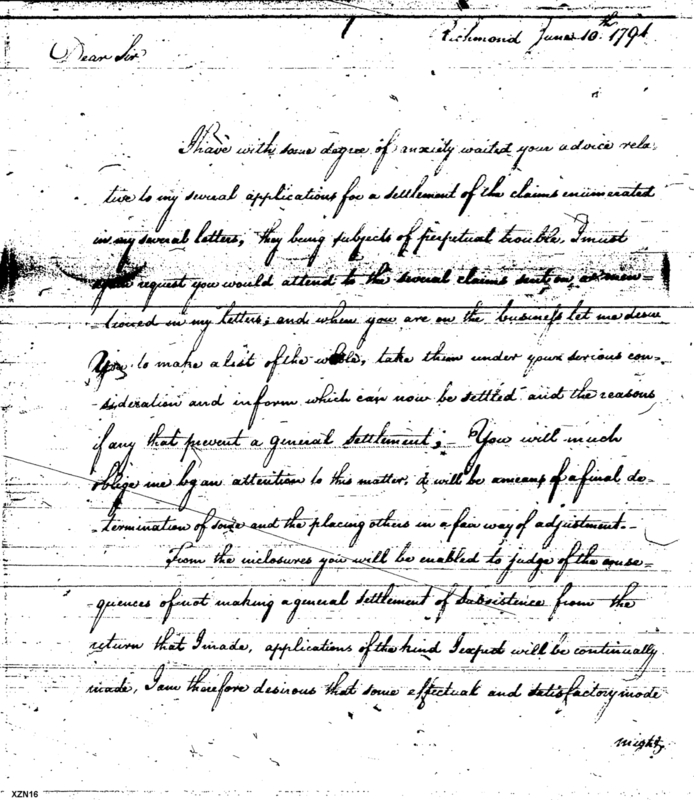 Richmond June 10th 1794
Dear Sir
I have with some degree of anxiety waited your advice rela-
tive to my several applications for a settlement of the claims enumerated
in my several letters, they being subjects of perpetual trouble, I must
again request you would attend to the several claims sent on, as men-
-tioned in my letters; and when you are on the business let me desire
you to make a list of the whole, take them under your serious con-
-sideration and inform which can now be settled and the reasons
if any that prevent a general settlement; - You will much
oblige me by an attention to this matter, it will be a means of a final de-
-termination of some and the placing others in a fair way of adjustment. -
From the inclosures you will be enabled to judge of the conse-
quences of not making a general settlement of subsistence from the
return that I made, applications of the kind I expect will be continually
made, I am therefore desirous that some effectual and satisfactory mode
might
XZN16